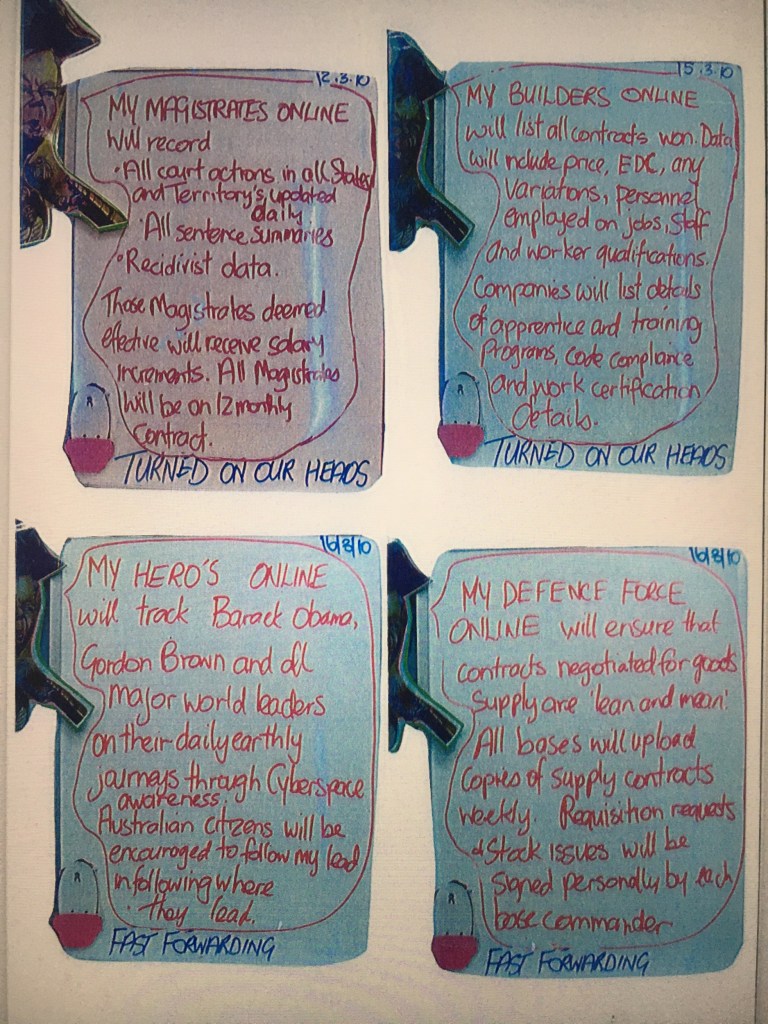 12.3.10
MY MAGISTRATES ONLINE
will record
• All court actions in all States
and Territory's, updated
daily
• All sentence summaries
• Recidivist data.
Those Magistrates deemed
effective will receive salary
increments. All Magistrates
will be on 12 monthly
Contract.
R
TURNED ON OUR HEADS
15.3.10
MY BUILDERS ONLINE
will list all contracts won. Data
will include price, EDC, any
variations, personnel
employed on jobs, Staff
and worker qualifications.
Companies will list details
of apprentice and training
programs, code compliance
and work certification
details.
R
TURNED ON OUR HEADS
16/3/10
MY HERO'S ONLINE
will track Barack Obama,
Gordon Brown and all
major world leaders
on their daily earthly
journeys through Cyberspace
awareness.
Australian citizens will be
encouraged to follow my lead
in following where
they lead.
R
FAST FORWARDING
16/3/10
MY DEFENCE FORCE
ONLINE will ensure that
contracts negotiated for goods
supply are 'lean and mean'.
All bases will upload
copies of supply contracts
weekly. Requisition requests
& Stock issues will be
signed personally by each
base commander
R
FAST FORWARDING